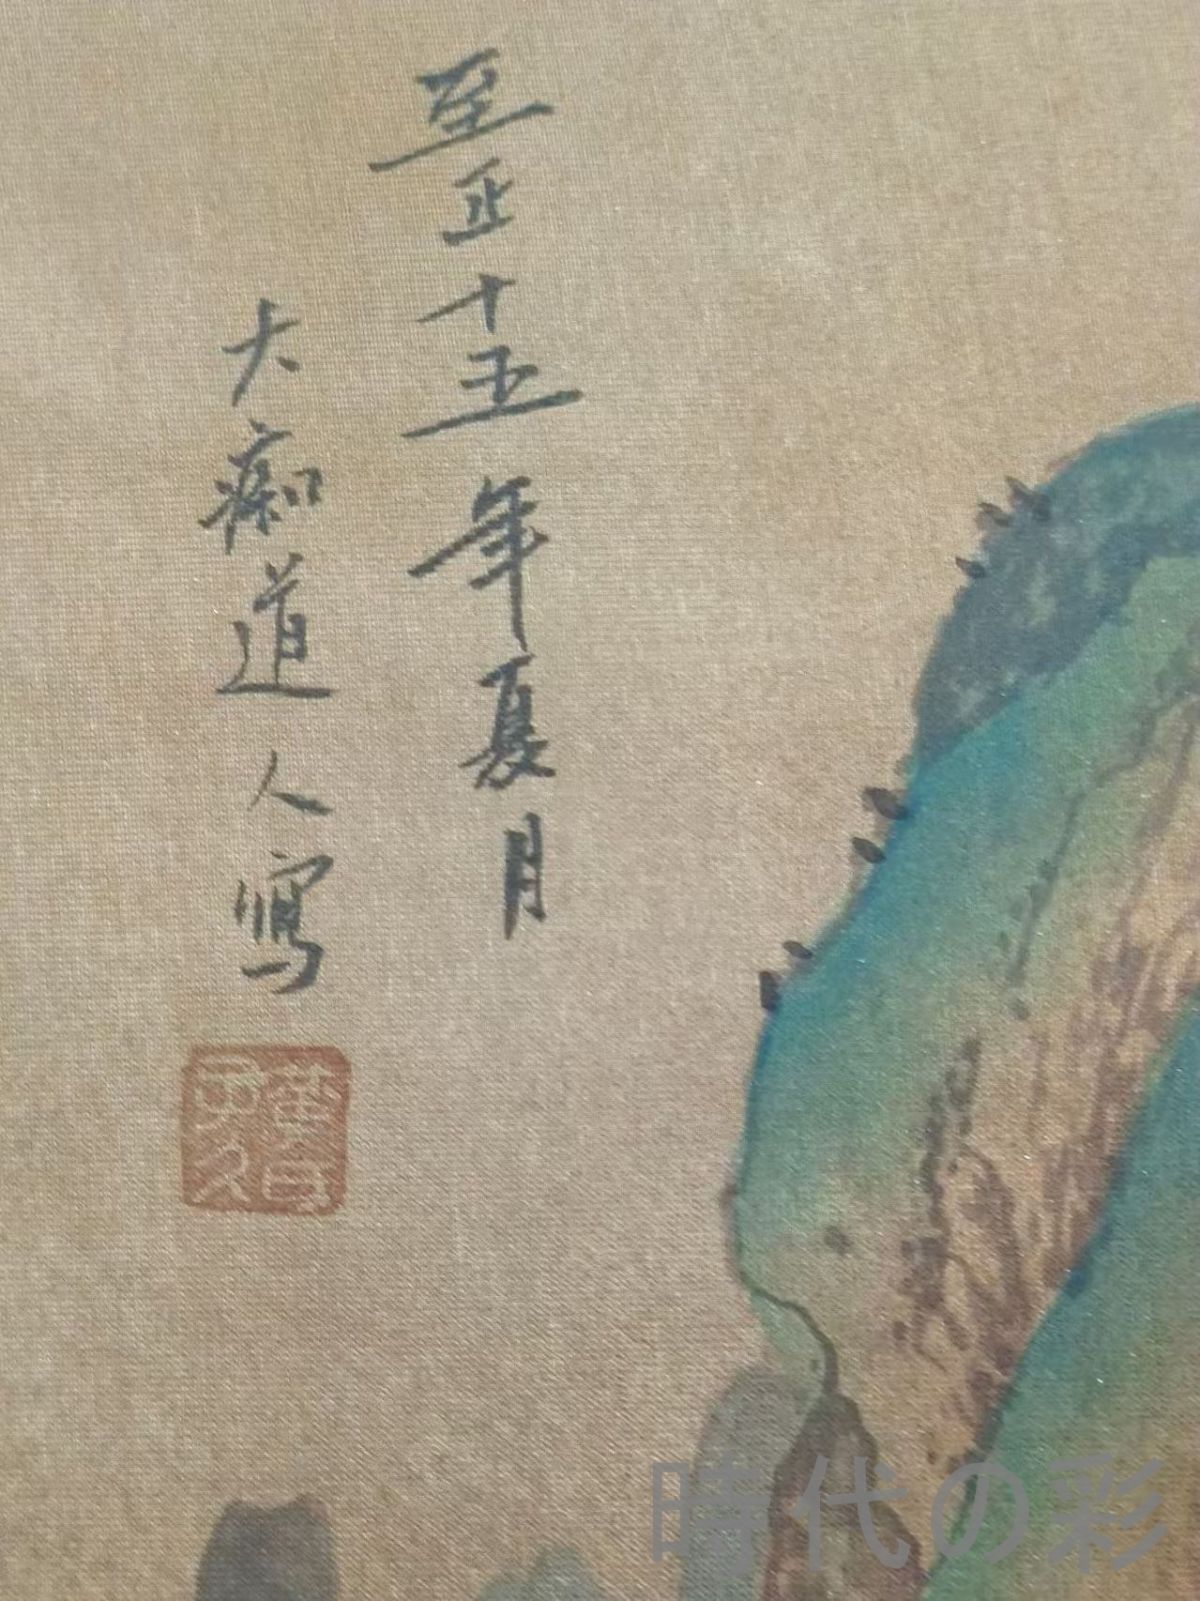 至正十五年夏月
大痴道人寫
時代の彩